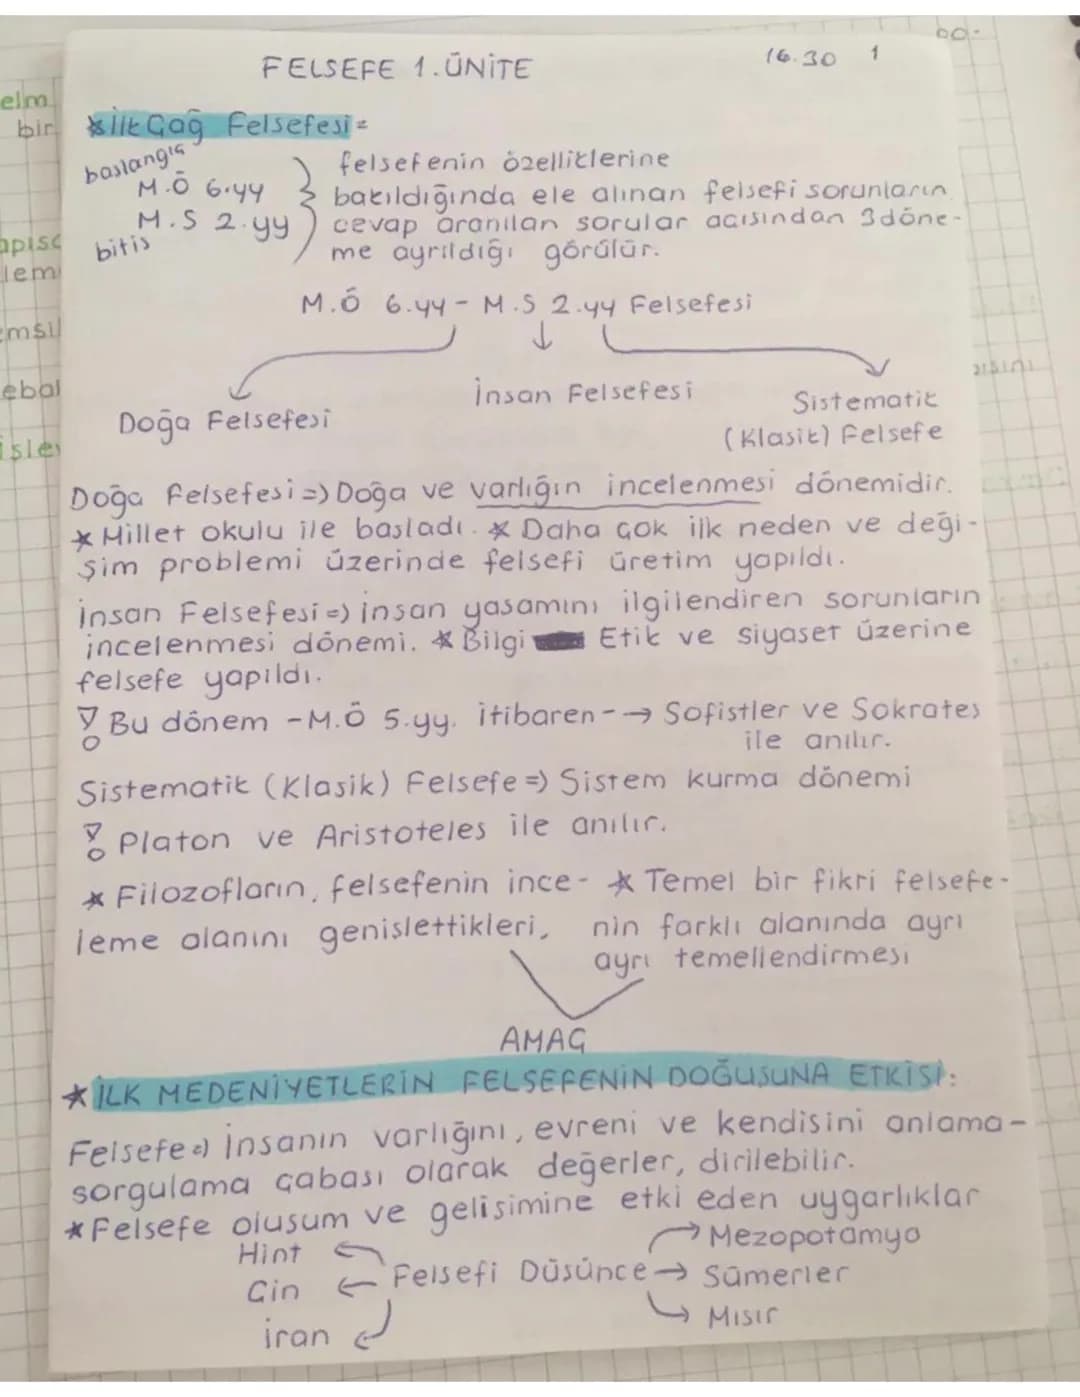 bo-
16.30 1
FELSEFE 1.ÜNİTE
elm
bir
*İlk Çağ Felsefesi=
başlangıç
M.Ö 6.yy
M.S 2.yy
bitis
felsefenin özelliklerine
bakıldığında ele alınan felsefi sorunların
cevap aranılan sorular acısından 3döne-
me ayrıldığı görülür.
apısc
lem
M.Ö 6.yy - M.S 2.yy Felsefesi
emsil
ebal
işle
Doğa Felsefesi
İnsan Felsefesi
Sistematik
(Klasik) Felsefe
Doğa Felsefesi => Doğa ve varlığın incelenmesi dönemidir.
* Millet okulu ile basladı. * Daha çok ilk neden ve deği-
şim problemi üzerinde felsefi üretim yapıldı.
İnsan Felsefesi => insan yasamını ilgilendiren sorunların
incelenmesi dönemi. * Bilgi Etik ve siyaset üzerine
felsefe yapıldı.
! Bu dönem - M.Ö 5.yy. itibaren --> Sofistler ve Sokrates
ile anılır.
Sistematik (Klasik) Felsefe => Sistem kurma dönemi
! Platon ve Aristoteles ile anılır.
* Filozofların, felsefenin ince-
leme alanını genişlettikleri,
* Temel bir fikri felsefe-
nin farklı alanında ayrı
ayrı temellendirmesi
AMAÇ
* İLK MEDENİYETLERİN FELSEFENİN DOĞUSUNA ETKİSİ:
Felsefe => İnsanın varlığını, evreni ve kendisini anlama-
sorgulama çabası olarak değerler, dirilebilir.
* Felsefe olusum ve gelisimine etki eden uygarlıklar
Hint
Çin
İran
Felsefi Düsünce
Mezopotamya
Sümerler
Mısır